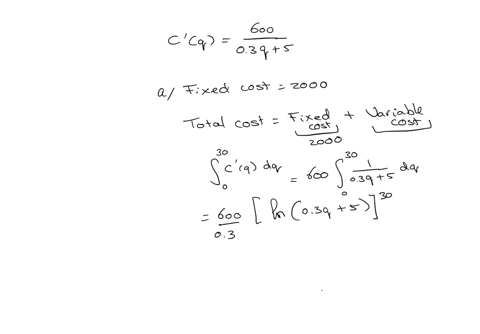 C'(q) = 600 / (0.3q + 5)
a/ Fixed cost = 2000
Total cost = Fixed cost + Variable cost
2000
∫₀³⁰ C'(q) dq = 600 ∫₀³⁰ 1 / (0.3q + 5) dq
= 600 / 0.3 [ ln (0.3q + 5) ]³⁰